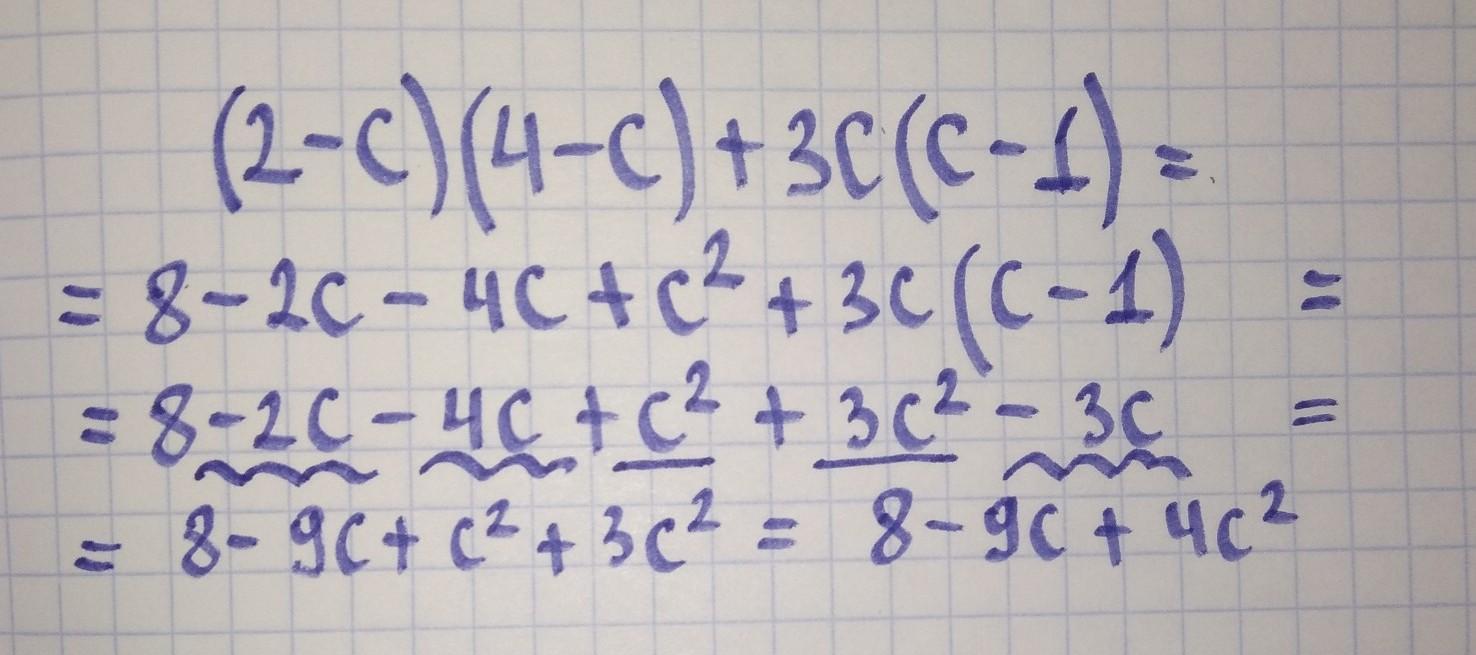 (2-c)(4-c)+3c(c-1)=
=8-2c-4c+c²+3c(c-1) =
=8-2c-4c+c²+3c²-3c =
=8-9c+c²+3c²=8-9c+4c²